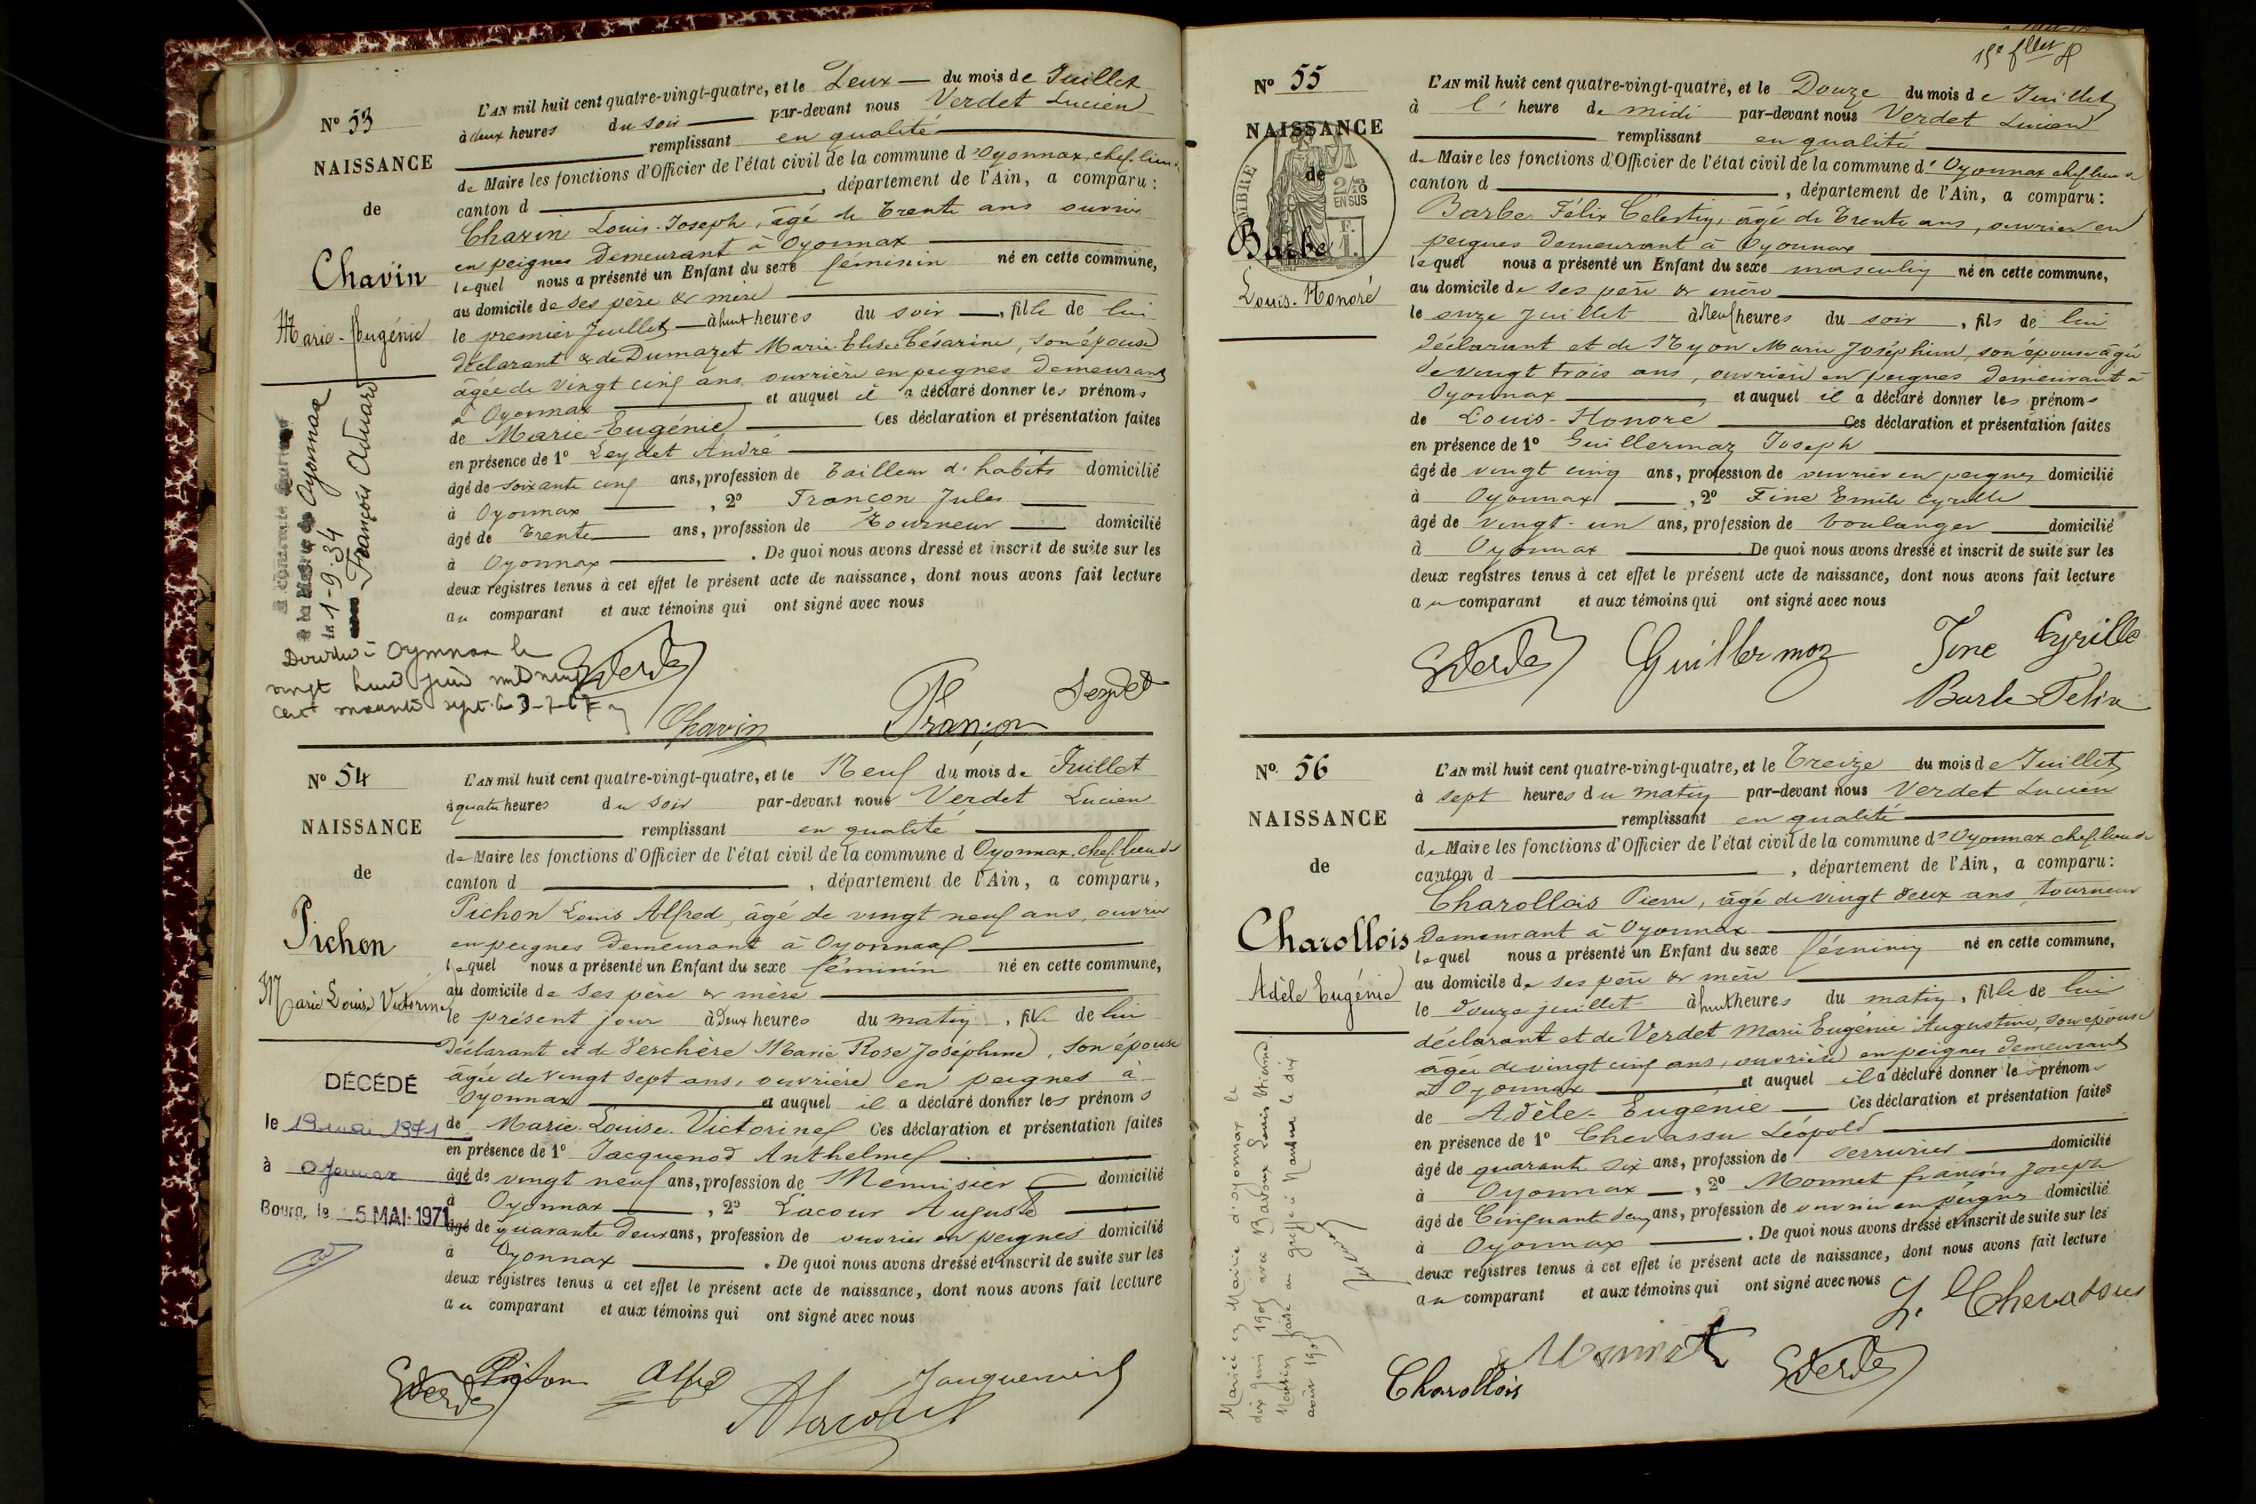 N° 53
NAISSANCE
de
Chavin
Marie-Eugénie
L'AN mil huit cent quatre-vingt-quatre, et le Deux du mois de Juillet
à deux heures du soir par-devant nous Verdet Lucien
remplissant en qualité
de Maire les fonctions d'Officier de l'état civil de la commune d'Oyonnax, chef-lieu de
canton d , département de l'Ain, a comparu :
Chavin Louis-Joseph, âgé de trente ans ouvrier
en peignes demeurant à Oyonnax
lequel nous a présenté un Enfant du sexe féminin né en cette commune,
au domicile de ses père & mère
le premier Juillet à huit heures du soir, fille de lui
déclarant & de Dumazet Marie Elise Césarine, son épouse
âgée de vingt cinq ans ouvrière en peignes demeurant
à Oyonnax et auquel il a déclaré donner les prénoms
de Marie-Eugénie Ces déclaration et présentation faites
en présence de 1° Leydet André
âgé de soixante cinq ans, profession de tailleur d'habits domicilié
à Oyonnax, 2° Françon Jules
âgé de trente ans, profession de Tourneur domicilié
à Oyonnax. De quoi nous avons dressé et inscrit de suite sur les
deux registres tenus à cet effet le présent acte de naissance, dont nous avons fait lecture
au comparant et aux témoins qui ont signé avec nous
A contracté mariage
à la Mairie de Oyonnax
le 1-9-34
avec François Aduard
Décédée à Oyonnax le
vingt huit juin mil neuf
cent soixante sept. le 3-7-67
Verdet
Chavin
Françon
Leydet
N° 54
NAISSANCE
de
Pichon
Marie Louise Victorine
L'AN mil huit cent quatre-vingt-quatre, et le Neuf du mois de Juillet
à quatre heures du soir par-devant nous Verdet Lucien
remplissant en qualité
de Maire les fonctions d'Officier de l'état civil de la commune d Oyonnax, chef lieu de
canton d , département de l'Ain, a comparu,
Pichon Louis Alfred, âgé de vingt neuf ans, ouvrier
en peignes demeurant à Oyonnax
lequel nous a présenté un Enfant du sexe féminin né en cette commune,
au domicile de ses père & mère
le présent jour à Deux heures du matin, fille de lui
déclarant et de Verchère Marie Rose Joséphine, son épouse
âgée de vingt sept ans, ouvrière en peignes à
Oyonnax et auquel il a déclaré donner les prénoms
de Marie-Louise-Victorine Ces déclaration et présentation faites
en présence de 1° Jacquenod Anthelme
âgé de vingt neuf ans, profession de Menuisier domicilié
à Oyonnax, 2° Lacour Auguste
âgé de quarante deux ans, profession de ouvrier en peignes domicilié
à Oyonnax. De quoi nous avons dressé et inscrit de suite sur les
deux registres tenus à cet effet le présent acte de naissance, dont nous avons fait lecture
au comparant et aux témoins qui ont signé avec nous
DÉCÉDÉ
le 1971
à Oyonnax
Bourg, le 5 MAI 1971
Verdet
Pichon Alfred
Jacquenod
A Lacour
N° 55
NAISSANCE
de
Barbe
Louis-Honoré
TIMBRE
2/10
EN SUS
F.
L'AN mil huit cent quatre-vingt-quatre, et le Douze du mois de Juillet
à l' heure de midi par-devant nous Verdet Lucien
remplissant en qualité
de Maire les fonctions d'Officier de l'état civil de la commune d'Oyonnax chef lieu de
canton d , département de l'Ain, a comparu :
Barbe Félix Célestin, âgé de trente ans, ouvrier en
peignes demeurant à Oyonnax
lequel nous a présenté un Enfant du sexe masculin né en cette commune,
au domicile de ses père & mère
le onze Juillet à Neuf heures du soir, fils de lui
déclarant et de Nyon Marie Joséphine, son épouse âgée
de vingt trois ans, ouvrière en peignes demeurant à
Oyonnax et auquel il a déclaré donner les prénoms
de Louis-Honoré Ces déclaration et présentation faites
en présence de 1° Guillermoz Joseph
âgé de vingt cinq ans, profession de ouvrier en peignes domicilié
à Oyonnax, 2° Fine Emile Cyrille
âgé de vingt-un ans, profession de boulanger domicilié
à Oyonnax De quoi nous avons dressé et inscrit de suite sur les
deux registres tenus à cet effet le présent acte de naissance, dont nous avons fait lecture
au comparant et aux témoins qui ont signé avec nous
Verdet
Guillermoz
Fine Cyrille
Barbe Félix
N° 56
NAISSANCE
de
Charollois
Adèle Eugénie
L'AN mil huit cent quatre-vingt-quatre, et le Treize du mois de Juillet
à sept heures du matin par-devant nous Verdet Lucien
remplissant en qualité
de Maire les fonctions d'Officier de l'état civil de la commune d'Oyonnax chef lieu de
canton d , département de l'Ain, a comparu :
Charollois Pierre, âgé de vingt deux ans, tourneur
demeurant à Oyonnax
lequel nous a présenté un Enfant du sexe féminin né en cette commune,
au domicile de ses père & mère
le douze juillet à huit heures du matin, fille de lui
déclarant et de Verdet Marie Eugénie Augustine, son épouse
âgée de vingt cinq ans, ouvrière en peignes demeurant
à Oyonnax et auquel il a déclaré donner les prénoms
de Adèle-Eugénie Ces déclaration et présentation faites
en présence de 1° Chevassu Léopold
âgé de quarante six ans, profession de serrurier domicilié
à Oyonnax, 2° Monnet françois Joseph
âgé de Cinquante deux ans, profession de ouvrier en peignes domicilié
à Oyonnax. De quoi nous avons dressé et inscrit de suite sur les
deux registres tenus à cet effet le présent acte de naissance, dont nous avons fait lecture
au comparant et aux témoins qui ont signé avec nous
Mariée en Mairie d'Oyonnax le
dix juin avec Louis Etienne
Mention faite au greffe à Nantua le dix
août
L. Chevassus
Monnet
Verdet
Charollois